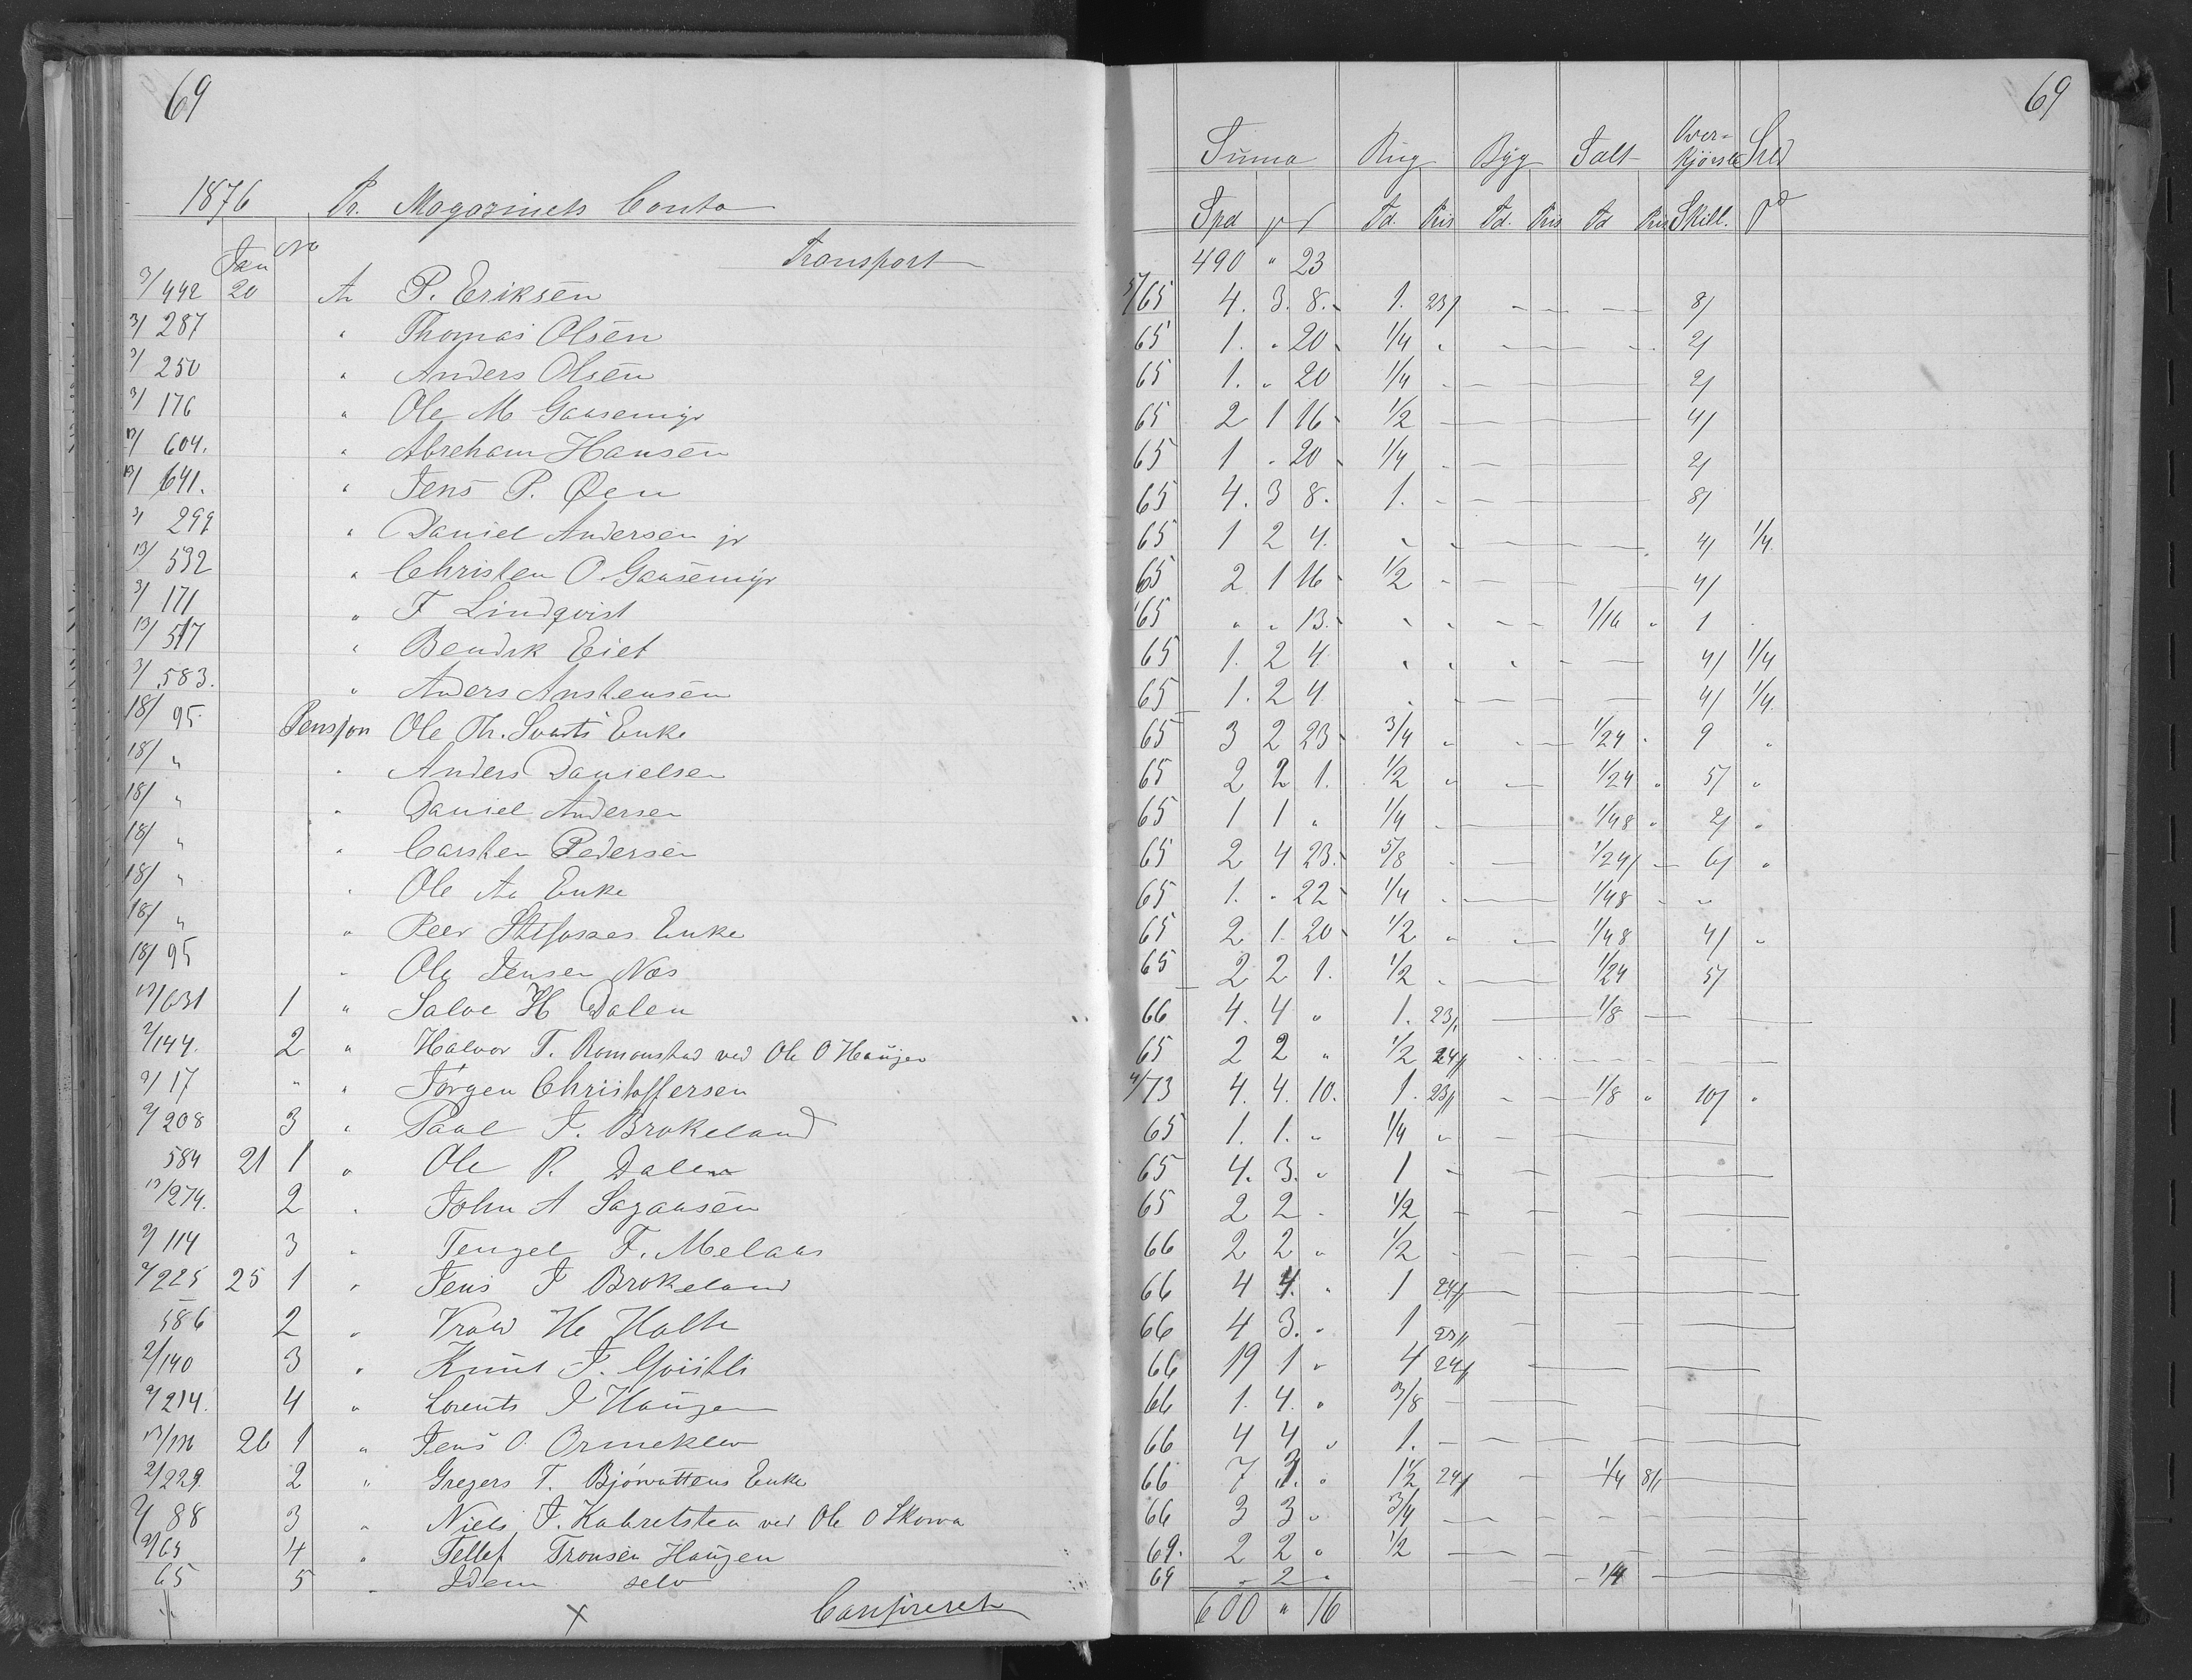 69
1876 Pr. Magazinets Conto
Jan No Transport
3/442 20 An P. Eriksen
3/287 " Thomas Olsen
3/250 " Anders Olsen
3/176 " Ole M Gaasemyr
12/604. " Abreham Hansen
641. " Jens P. Øen
3/299 " Daniel Andersen jr
13/532 " Christen O. Gaasemyr
3/171 " F Lindqvist
13/517 " Bendik Eiet
3/583. " Anders Anstensen
18/95. Pensjon Ole Th. Svarts Enke
18/ " " Anders Danielsen
18/ " " Daniel Andersen
18/ " " Carsten Pedersen
18/ " " Ole Aa Enke
18/ " " Peer Enke
18/95 " Ole Jensen Næs
12/631 1 " Salve H Dalen
2/144. 2 " Halvor T. Romonstad ved Ole O Haugen
2/17 " " Jørgen Christoffersen
2/208 3 " Paal J. Brokeland
584 21 1 " Ole P. Dalen
13/274. 2 " John A Sagaasen
2/114 3 " Tengel F. Melaas
2/225 25 1 " Jens J Brokeland
586 2 " He Holte
2/140 3 " Knut J.
2/214. 4 " Lorents J Haugen
13/136 26 1 " Jens O. Ormeklev
2/229. 2 " Gregers T. Bjórvattens Enke
2/88 3 " Niels J. ved Ole O Skorva
2/65 4 " Tellef Tronsen Haugen
65 5 " Idem selv
X
69
Suma Rug Byg Salt Over- Kjørsel Sild
Spd Td. Pris Td. Pris Td Pris Skill.
490 " 23
5/65 4. 3. 8. 1. 23/ 8/
65 1. " 20 1/4 " 2/
65 1. " 20 1/4 2/
65 2 1 16 1/2 4/
65 1 " 20 1/4 2/
65 4. 3 8. 1. 8/
65 1 2 4. " " 4/ 1/4.
65 2 1 16 1/2 4/
65 " " 13. " " 1/16 " 1
65 1. 2 4. " " 4/ 1/4
65 1. 2 4. 4/ 1/4.
65 3 2 23 3/4 " 1/24 " 9 "
65 2 2 1. 1/2 " 1/24 " 5/ "
65 1 1 " 1/4 1/48 " 2/ "
65 2 4 23. 5/8 1/24 6/ "
65 1. " 22 1/4 1/48 "
65 2 1. 20 1/2 " 1/48 4/ "
65 2 2 1. 1/2 1/24 5/
66 4. 4 " 1. 23/ 1/8
65 2 2 " 1/2 24/
4/73 4. 4. 10. 1. 23/ 1/8 " 10/ "
65 1. 1. " 1/4 "
65 4. 3. " 1
65 2 2 1/2
66 2 2 " 1/2
66 4 4. " 1 24/
66 4 3. " 1 23/
66 19 1 " 4 24/
66 1. 4. " 3/8
66 4 4 " 1.
66 7 " 1 1/2 24/ 1/4 8/
66 3 3 " 3/4
69. 2 2 " 1/2
69 " 2 " 1/4
600 " 16